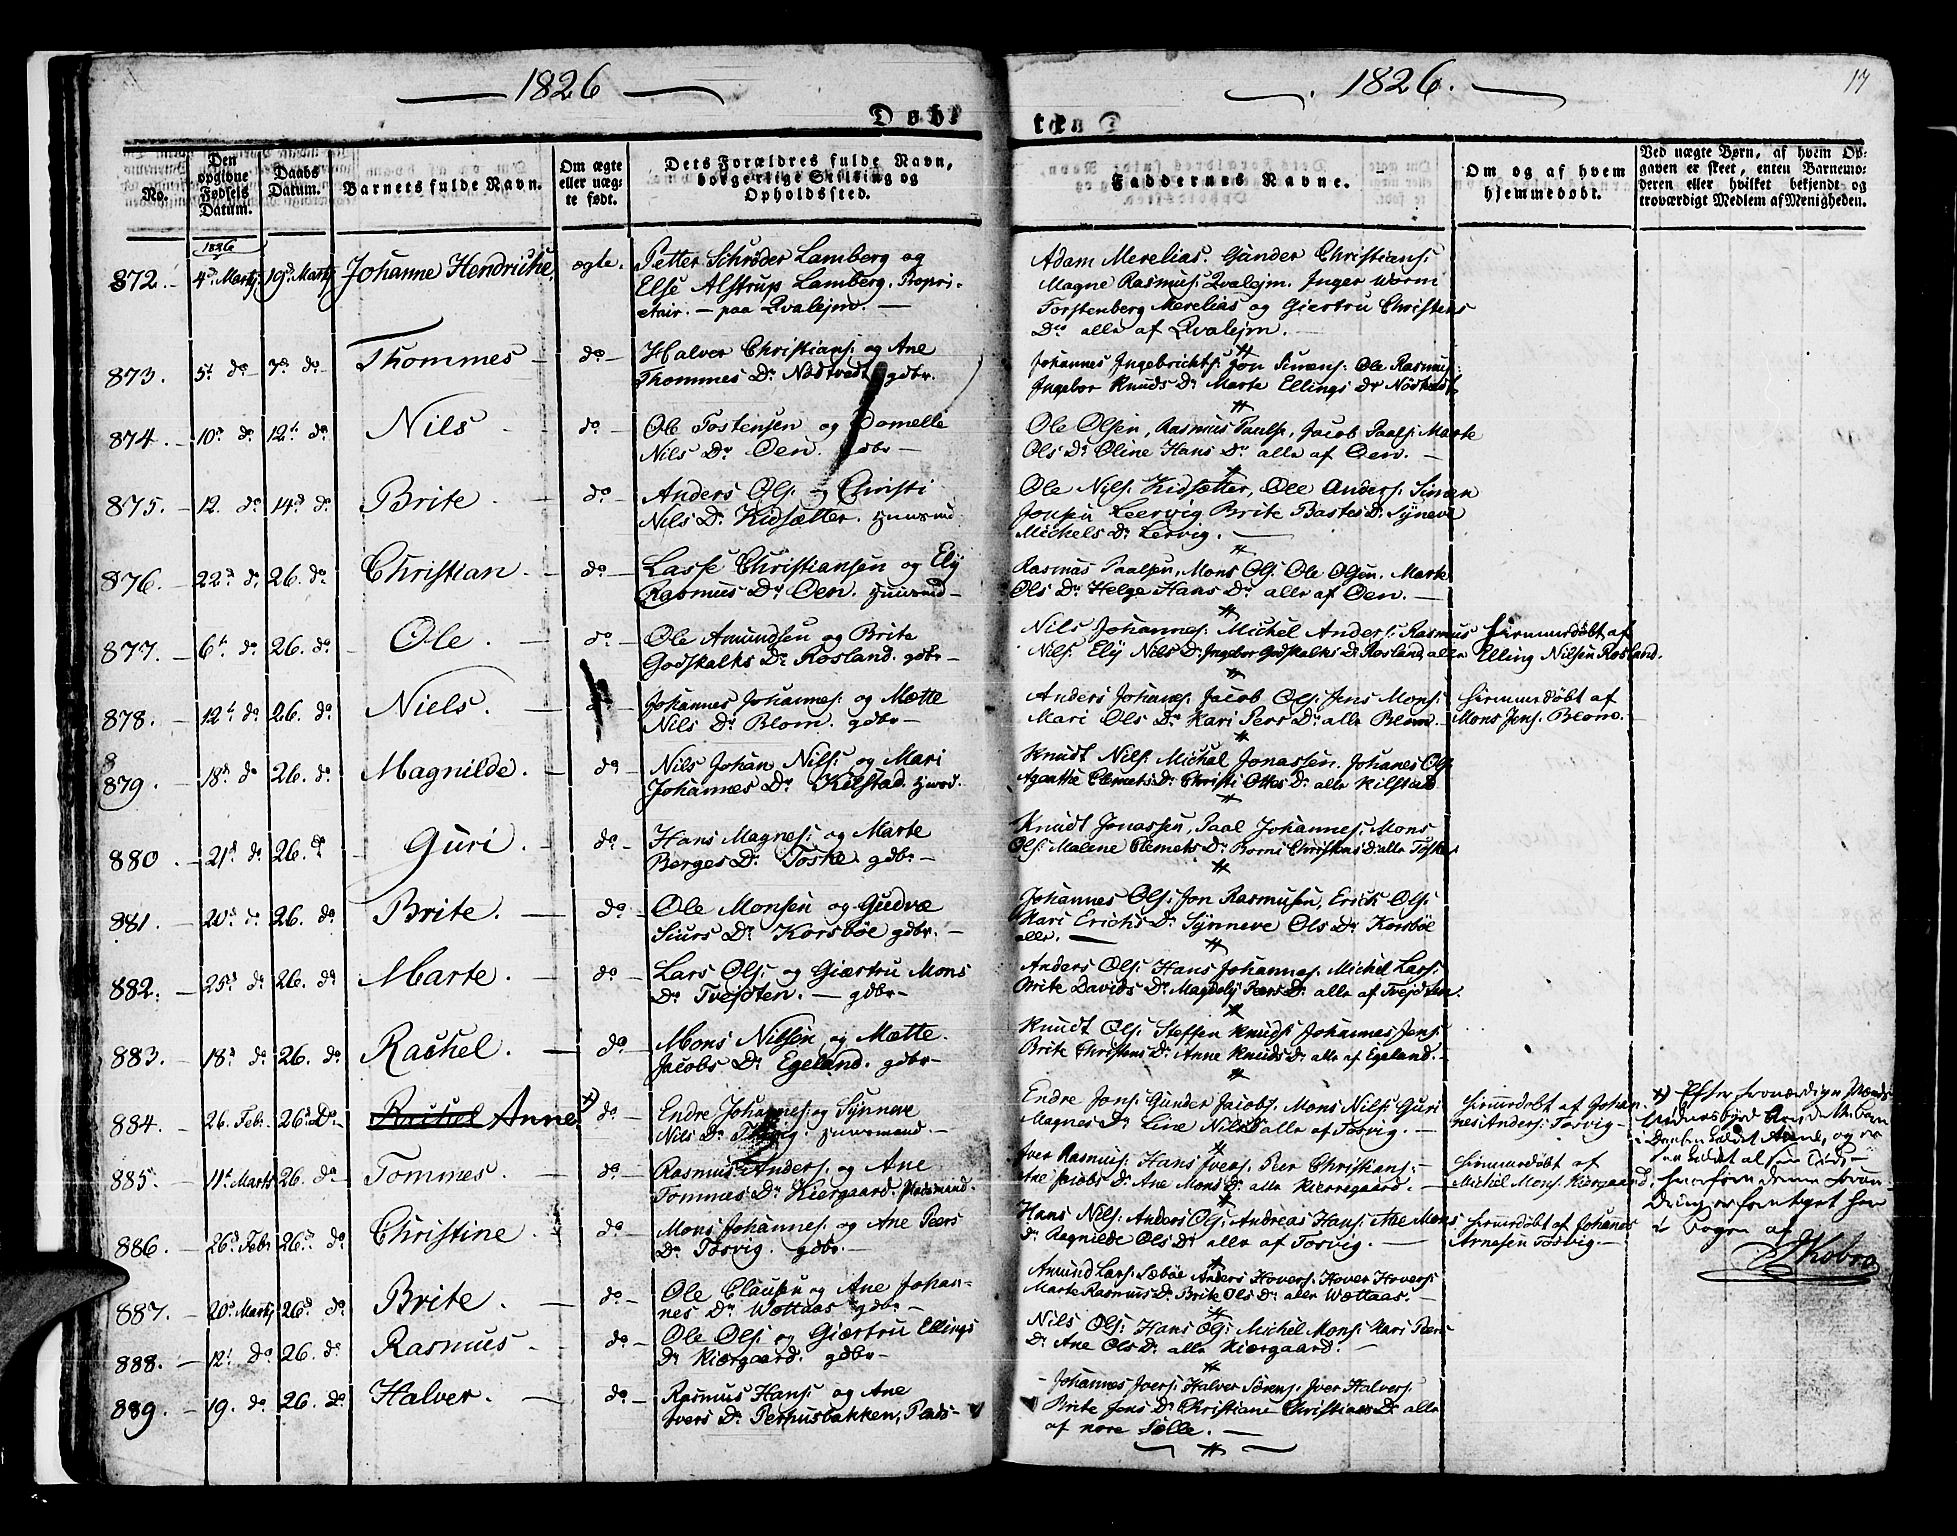 1826
1826.
17
Døbte
No.
Den opgivne Fødsels Datum.
Daabs Datum.
Barnets fulde Navn.
Om ægte eller uægte født.
Dets Forældres fulde Navn, borgerlige Stilling og Opholdssted.
Faddernes Navne.
Om og af hvem hjemmedøbt.
Ved uægte Børn, af hvem Opgaven er skeet, enten Barnemoderen eller hvilket bekjendt og troværdigt Medlem af Menigheden.
1826
872. 4d. Martj 19d. Martj Johanne Hendriche, ægte. Petter Schrøder Lamberg og
Else Alstrup Lamberg. Propri-
etair. — paa Qvalejm. —
Adam Merelias. Gunder Christians:
Magne Rasmus: Qvalejm. Inger Worm
Torstenberg Merelias og Giertru Christens
Dr alle af Qvalejm. —
873. 5t do 7d. do Thommes do Halver Christians: og Ane
Thommes Dr Nødtvedt gdbr.
Johannes Ingebrichts: Jon Simens: Ole Rasmus:
Ingebor Knuds Dr Marte Ellings Dr Nødtvedt
874. 10d. do 12t. do Nils do Ole Tostensen og Domelle
Nils Dr Øen. gdbr —
Ole Olsen, Rasmus Pauls:, Jacob Paals: Marte
Ols Dr Oline Hans Dr alle af Øen. —
875. 12. do 14d. do Brite do Anders Ols: og Christi
Nils Dr Kidsætter. huusmd
Ole Nils: Kidsætter, Ole Anders: Simen
Leervig Brite Bastes Dr Syneve
Michels Dr Lervig. —
876. 22d. do 26. do Christian do Lasse Christiansen og Ely
Rasmus Dr Øen. huusmd —
Rasmus Paalsen, Mons Ols: Ole Olsen. Marte
Ols Dr Helge Hans Dr alle af Øen. —
877. 6t. do 26. do Ole. do Ole Amundsen og Brite
Godskalks Dr Røsland. gdbr —
Nils Johannes: Michel Anders: Rasmus
Nils: Ely Nils Dr Ingebor Godskalks Dr Røsland alle
hiemmedøbt af
Elling Nilsen Røsland.
878. 12t. do 26. do Niels. Johannes Johannes: og Mætte
Nils Dr Blom. gdbr —
Anders Johanes: Jacob Ols: Jens Mons:
Mari Ols Dr Kari Pers Dr alle Blom. —
hiemmedøbt af
Mons Jens: Blom. —
879. 18d. do 26. do Magnilde. do Nils Johan Nils: og Mari
Johannes Dr Kilstad. huusd.
Knudt Nils: Michel Jonassen. Johanes Ols:
Agaathe Clemets Dr Christi Ottes Dr alle Kilstad
880. 21d. do 26. do Guri. do Hans Magnes: og Marte
Børges Dr Toske. gdbr —
Knudt Jonassen, Paal Johannes: Mons
Ols: Malene Clemets Dr Borni Christens Dr alle Toske
881. 20d. do 26. do Brite. do Ole Monsen og Gudvæ
Siurs Dr Korsbøe gdbr. —
Johannes Ols: Jon Rasmusen, Erich Ols:
Mari Erichs Dr Synneve Ols Dr Korsbøe
alle. —
882. 25d. do 26. do Marte. do Lars Ols: og Giærtru Mons
Dr Tvejdten. — gdbr —
Anders Ols: Hans Johannes: Michel Lars:
Brite Davids Dr Magdely Peers Dr alle af Tvejdten.
883. 18d. do 26. do Rachel. do Mons Nilsen og Mætte.
Jacobs Dr Egeland. gdbr —
Knudt Ols: Steffen Knuds: Johannes Jens:
Brite Christens Dr Anne Knuds Dr alle af Egeland. —
884. 26. Febr. 26d. Do Rachel Anne do Endre Johannes: og Synneve
Nils Dr huusmand. —
Endre Jons: Gunder Jacobs: Mons Nils: Guri
Magnes Dr Line Nils Dr alle af Tosvig. —
hiemmedøbt af Johan-
nes Anders: Tosvig —
885. 11t. Marts 26. do Tommes. do Rasmus Anders: og Ane
Tommes Dr Kiergaard. pladsmand.
Iver Rasmus: Hans Ivers: Peer Christians: —
Ane Jacobs Dr Ane Mons Dr alle Kierregaard. —
hiemmedøbt af
Michel Mons: Kiergaard.
886. 26d. Febr 26d. do Christine. do Mons Johannes: og Ane Peers
Dr Tosvig. gdbr. —
Hans Nils: Anders Ols: Andreas Hans: Ane Mons
Dr Ragnilde Ols Dr alle af Tosvig. —
hiemmedøbt af Johanes
Arnesen Tosvig. —
Anne, og er
Bogen af
JKobro
887. 20d. Martj 26d. do Brite. do Ole Clausen og Ane Johan-
nes Dr Wottaas gdbr —
Amund Lars: Sæbøe Anders Hovers: Hover Hovers:
Marte Rasmus Dr Brite Ols Dr alle Wættaas. —
888. 12t. do 26. do Rasmus do Ole Ols: og Giærtru Ellings
Dr Kiærgaard. gdbr —
Nils Ols: Hans Ols: Michel Mons: Kari Peers
Dr Ane Ols Dr alle Kiærgaard. —
889. 19. do 26. do Halver. do Rasmus Hans: og Ane
Ivers Dr Perpusbakken, Plads-
Johannes Ivers: Halver Sørens: Iver Halvers:
Brite Jens Dr Christiane Christians Dr alle
af nore Sølle. —